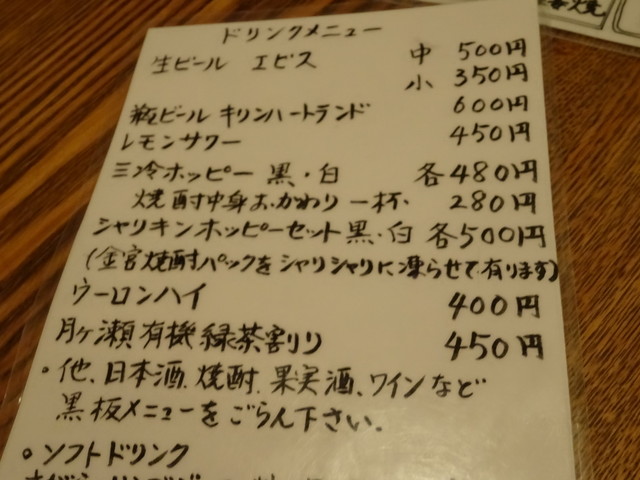 ドリンクメニュー
生ビール エビス 中 500円
小 350円
瓶ビール キリンハートランド 600円
レモンサワー 450円
三冷ホッピー 黒・白 各480円
焼酎中身おかわり 一杯 280円
シャリキンホッピーセット 黒・白 各500円
(金宮焼酎パックをシャリシャリに凍らせて有ります)
ウーロンハイ 400円
月ヶ瀬有機緑茶割り 450円
・他、日本酒、焼酎、果実酒、ワインなど
黒板メニューをごらん下さい。
○ソフトドリンク